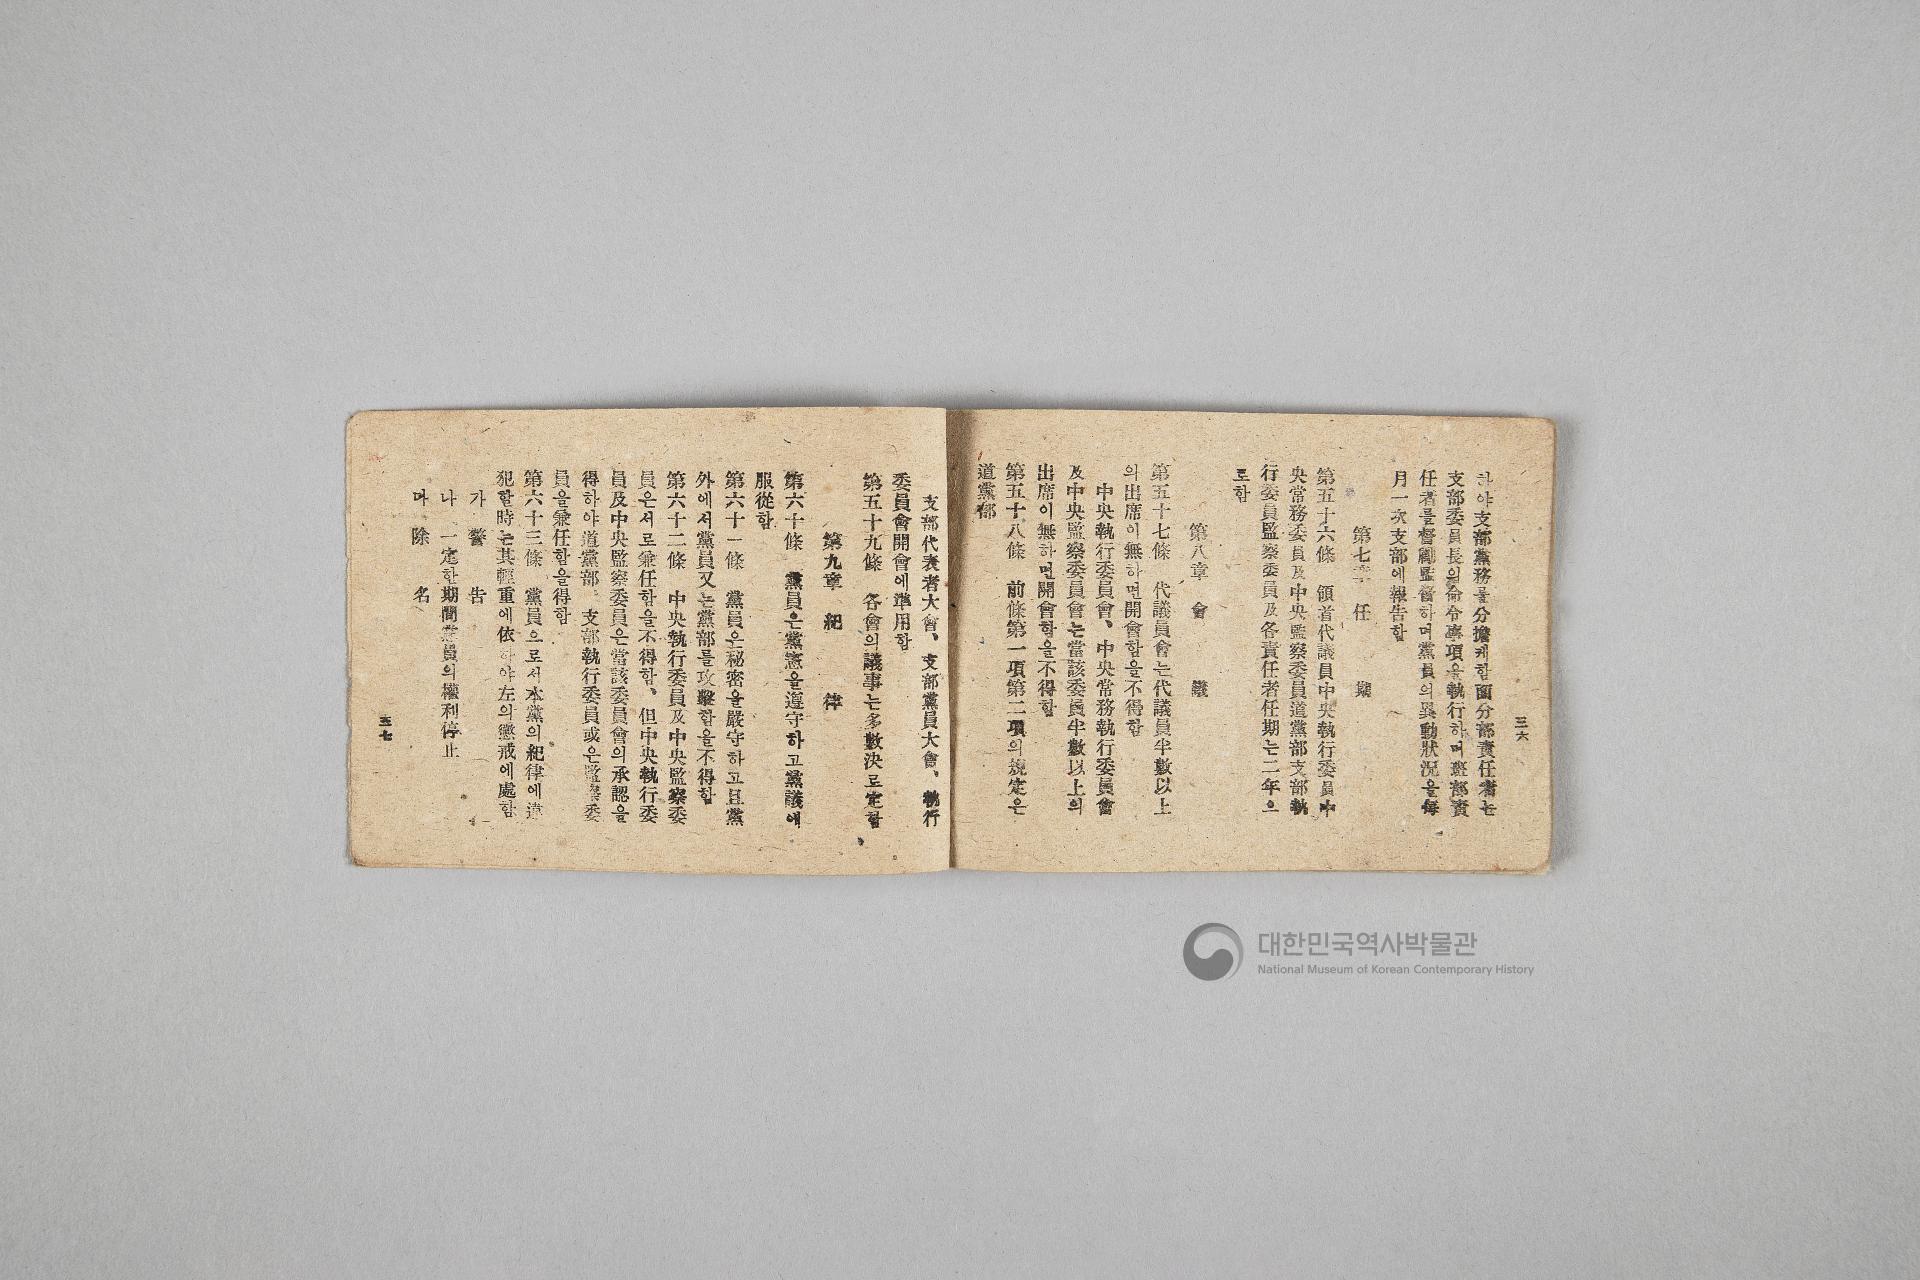 三六
하야支部黨務를分擔케함面分部責任者는
支部委員長의命令事項을執行하며班部責
任者를督勵監督하며黨員의異動狀況을每
月一次支部에報告함
第七章 任 期
第五十六條 領首代議員中央執行委員中
央常務委員及中央監察委員道黨部支部執
行委員監察委員及各責任者任期는二年으
로함
第八章 會 議
第五十七條 代議員會는代議員半數以上
의出席이無하면開會함을不得함
中央執行委員會、中央常務執行委員會
及中央監察委員會는當該委員半數以上의
出席이無하면開會함을不得함
第五十八條 前條第一項第二項의規定은
道黨部
支部代表者大會、支部黨員大會、執行
委員會開會에準用함
第五十九條 各會의議事는多數決로定함
第九章 紀 律
第六十條 黨員은黨憲을遵守하고黨議에
服從함
第六十一條 黨員은秘密을嚴守하고且黨
外에서黨員又는黨部를攻擊함을不得함
第六十二條 中央執行委員及中央監察委
員은서로兼任함을不得함、但中央執行委
員及中央監察委員은當該委員會의承認을
得하야道黨部、支部執行委員或은監察委
員을兼任함을得함
第六十三條 黨員으로서本黨의紀律에違
犯할時는其輕重에依하야左의懲戒에處함
가 警 告
나 一定한期間黨員의權利停止
마 除 名
三七
대한민국역사박물관
National Museum of Korean Contemporary History